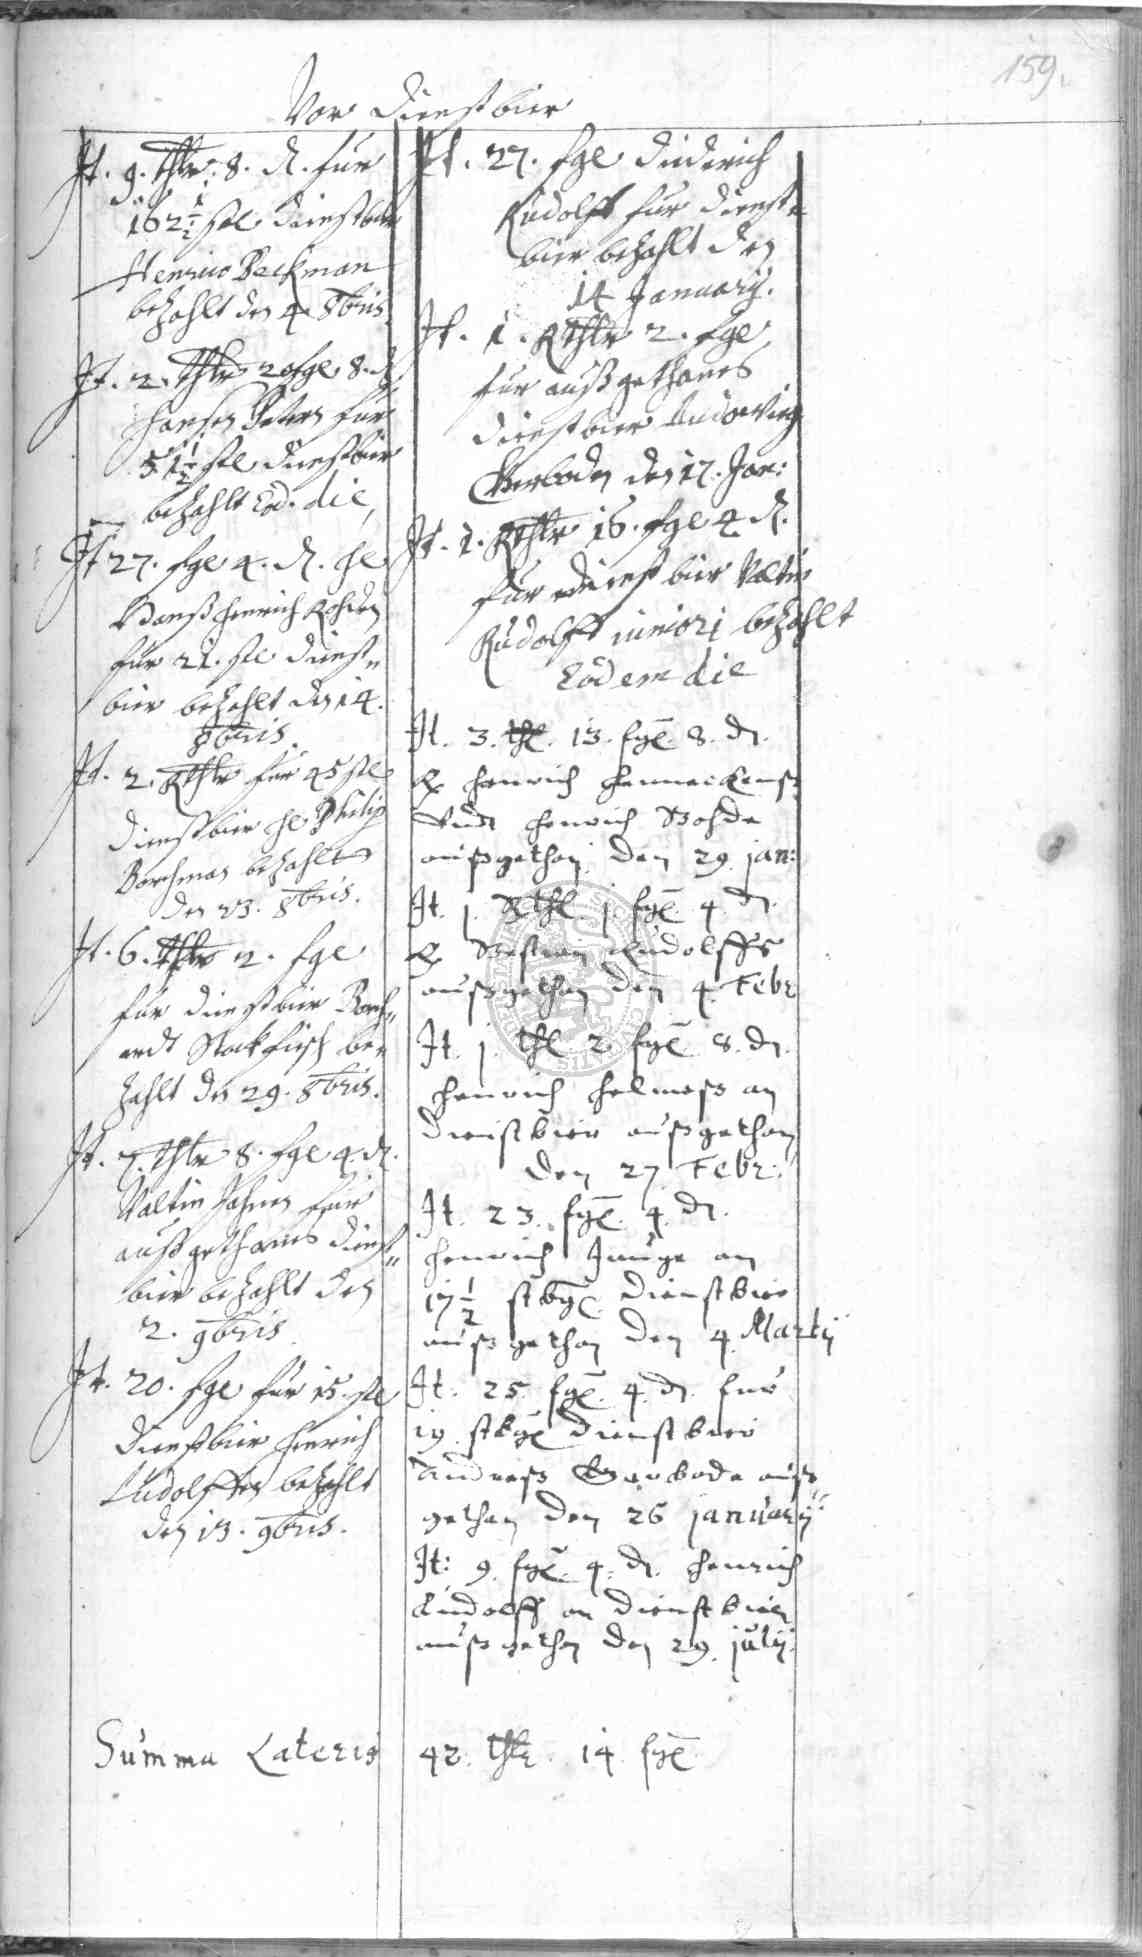 159.
Vor Dienstbier
It. 9. thlr. 8. d. fur
162 1/2 stl Dienstbier
Henrico Beckman
bezahlt den 4 8bris.
It. 2. thlr 20 sgl 8. d
Hansen Peters fur
51 1/2 stl Dienstbier
bezahlt Eod. die,
It 27. sgl 4. d. hl
Hanß Henrich Rohden
fur 21. stl Dienst-
bier bezahlt den 14.
8bris.
It. 2. Rthlr fur 45 stl
Dienstbier hl Philip
Borchman bezahlt
den 23. 8bris.
It. 6. thlr 2. sgl
fur Dienstbier Borch-
ardt Stockfisch be-
zahlt den 29. 8bris.
It. 7. thlr 8. sgl 4. d.
Valtin Jahnen fur
außgethanes Dienst-
bier bezahlt den
2. 9bris
It. 20. sgl fur 15. stl
Dienstbier Henrich
Ludolffen bezahlt
den 13. 9bris.
It. 27. sgl Diderich
Rudolff fur Dienst-
bier bezahlt den
14 January.
It. 1. Rthlr 2. sgl
fur außgethanes
Dienstbier Ludowieg
Gerboden den 17. Jan:
It. 1. Rthlr 16. sgl 4 d.
fur Dienstbier Valtin
Rudolff iuniori bezahlt
Eodem die
It. 3. thl. 13. sgl. 8. d.
Henrich Henneckenß
Undt Henrich Rohde
außgethan den 29. jan:
It. j. Rthl. j. sgl. 4. d.
Bestian Rudolffs
außgethan den 4. Febr
It. j. thl 2. sgl 8. d.
Henrich Helmeß an
Dienstbier außgethan
den 27 Febr:
It. 23. sgl. 4. d.
Henrich Junge an
17 1/2 stbgl. Dienstbier
außgethan den 4. Martij
It. 25 sgl. 4. d. fur
19 stbgl Dienstbier
Andreß Gerbode auß-
gethan den 26 january
It: 9. sgl. 4. d. Henrich
Rudolff an Dienstbier
außgethan den 29. julij.
Summa Lateris 42. thlr. 14. sgl